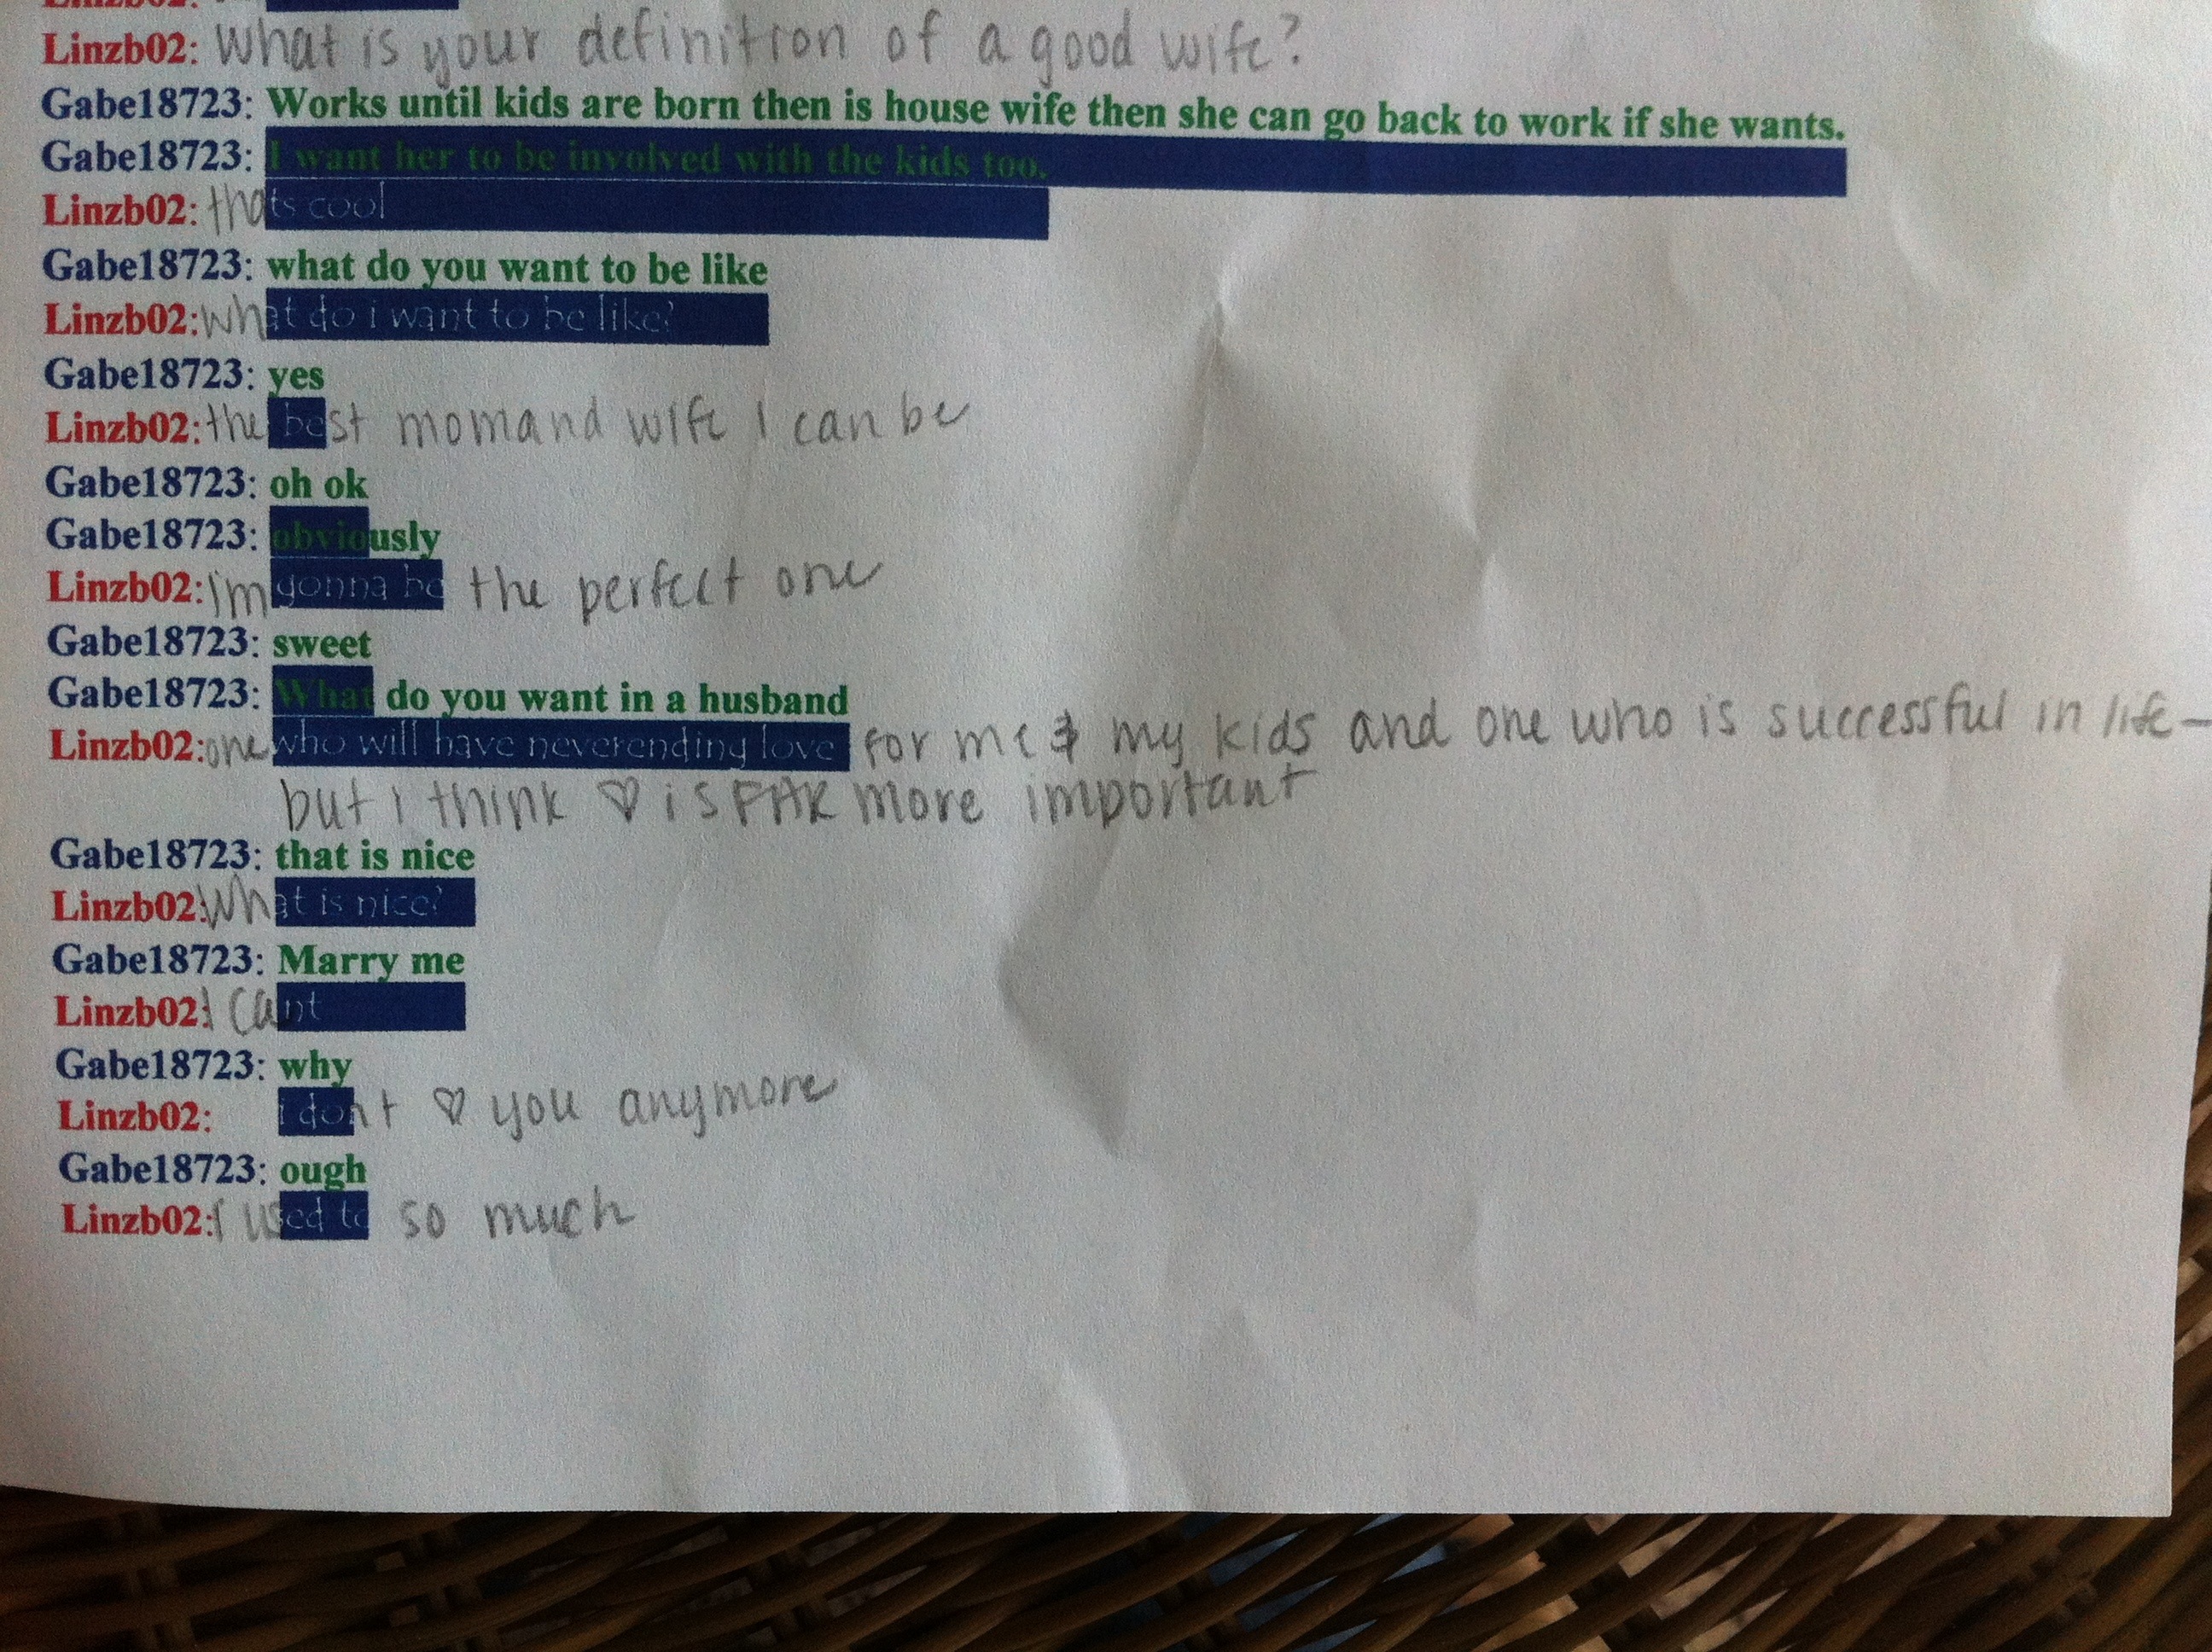 Linzb02:
Linzb02: What is your definition of a good wife?
Gabe18723: Works until kids are born then is house wife then she can go back to work if she wants.
Gabe18723: I want her to be involved with the kids too.
Linzb02: thats cool
Gabe18723: what do you want to be like
Linzb02: What do i want to be like?
Gabe18723: yes
Linzb02: the best mom and wife I can be
Gabe18723: oh ok
Gabe18723: obviously
Linzb02: I'm gonna be the perfect one
Gabe18723: sweet
Gabe18723: What do you want in a husband
Linzb02: one who will have neverending love for me & my kids and one who is successful in life–
but I think ♡ is FAR more important
Gabe18723: that is nice
Linzb02: What is nice?
Gabe18723: Marry me
Linzb02: I cant
Gabe18723: why
Linzb02: i dont ♡ you anymore
Gabe18723: ough
Linzb02: I used to so much